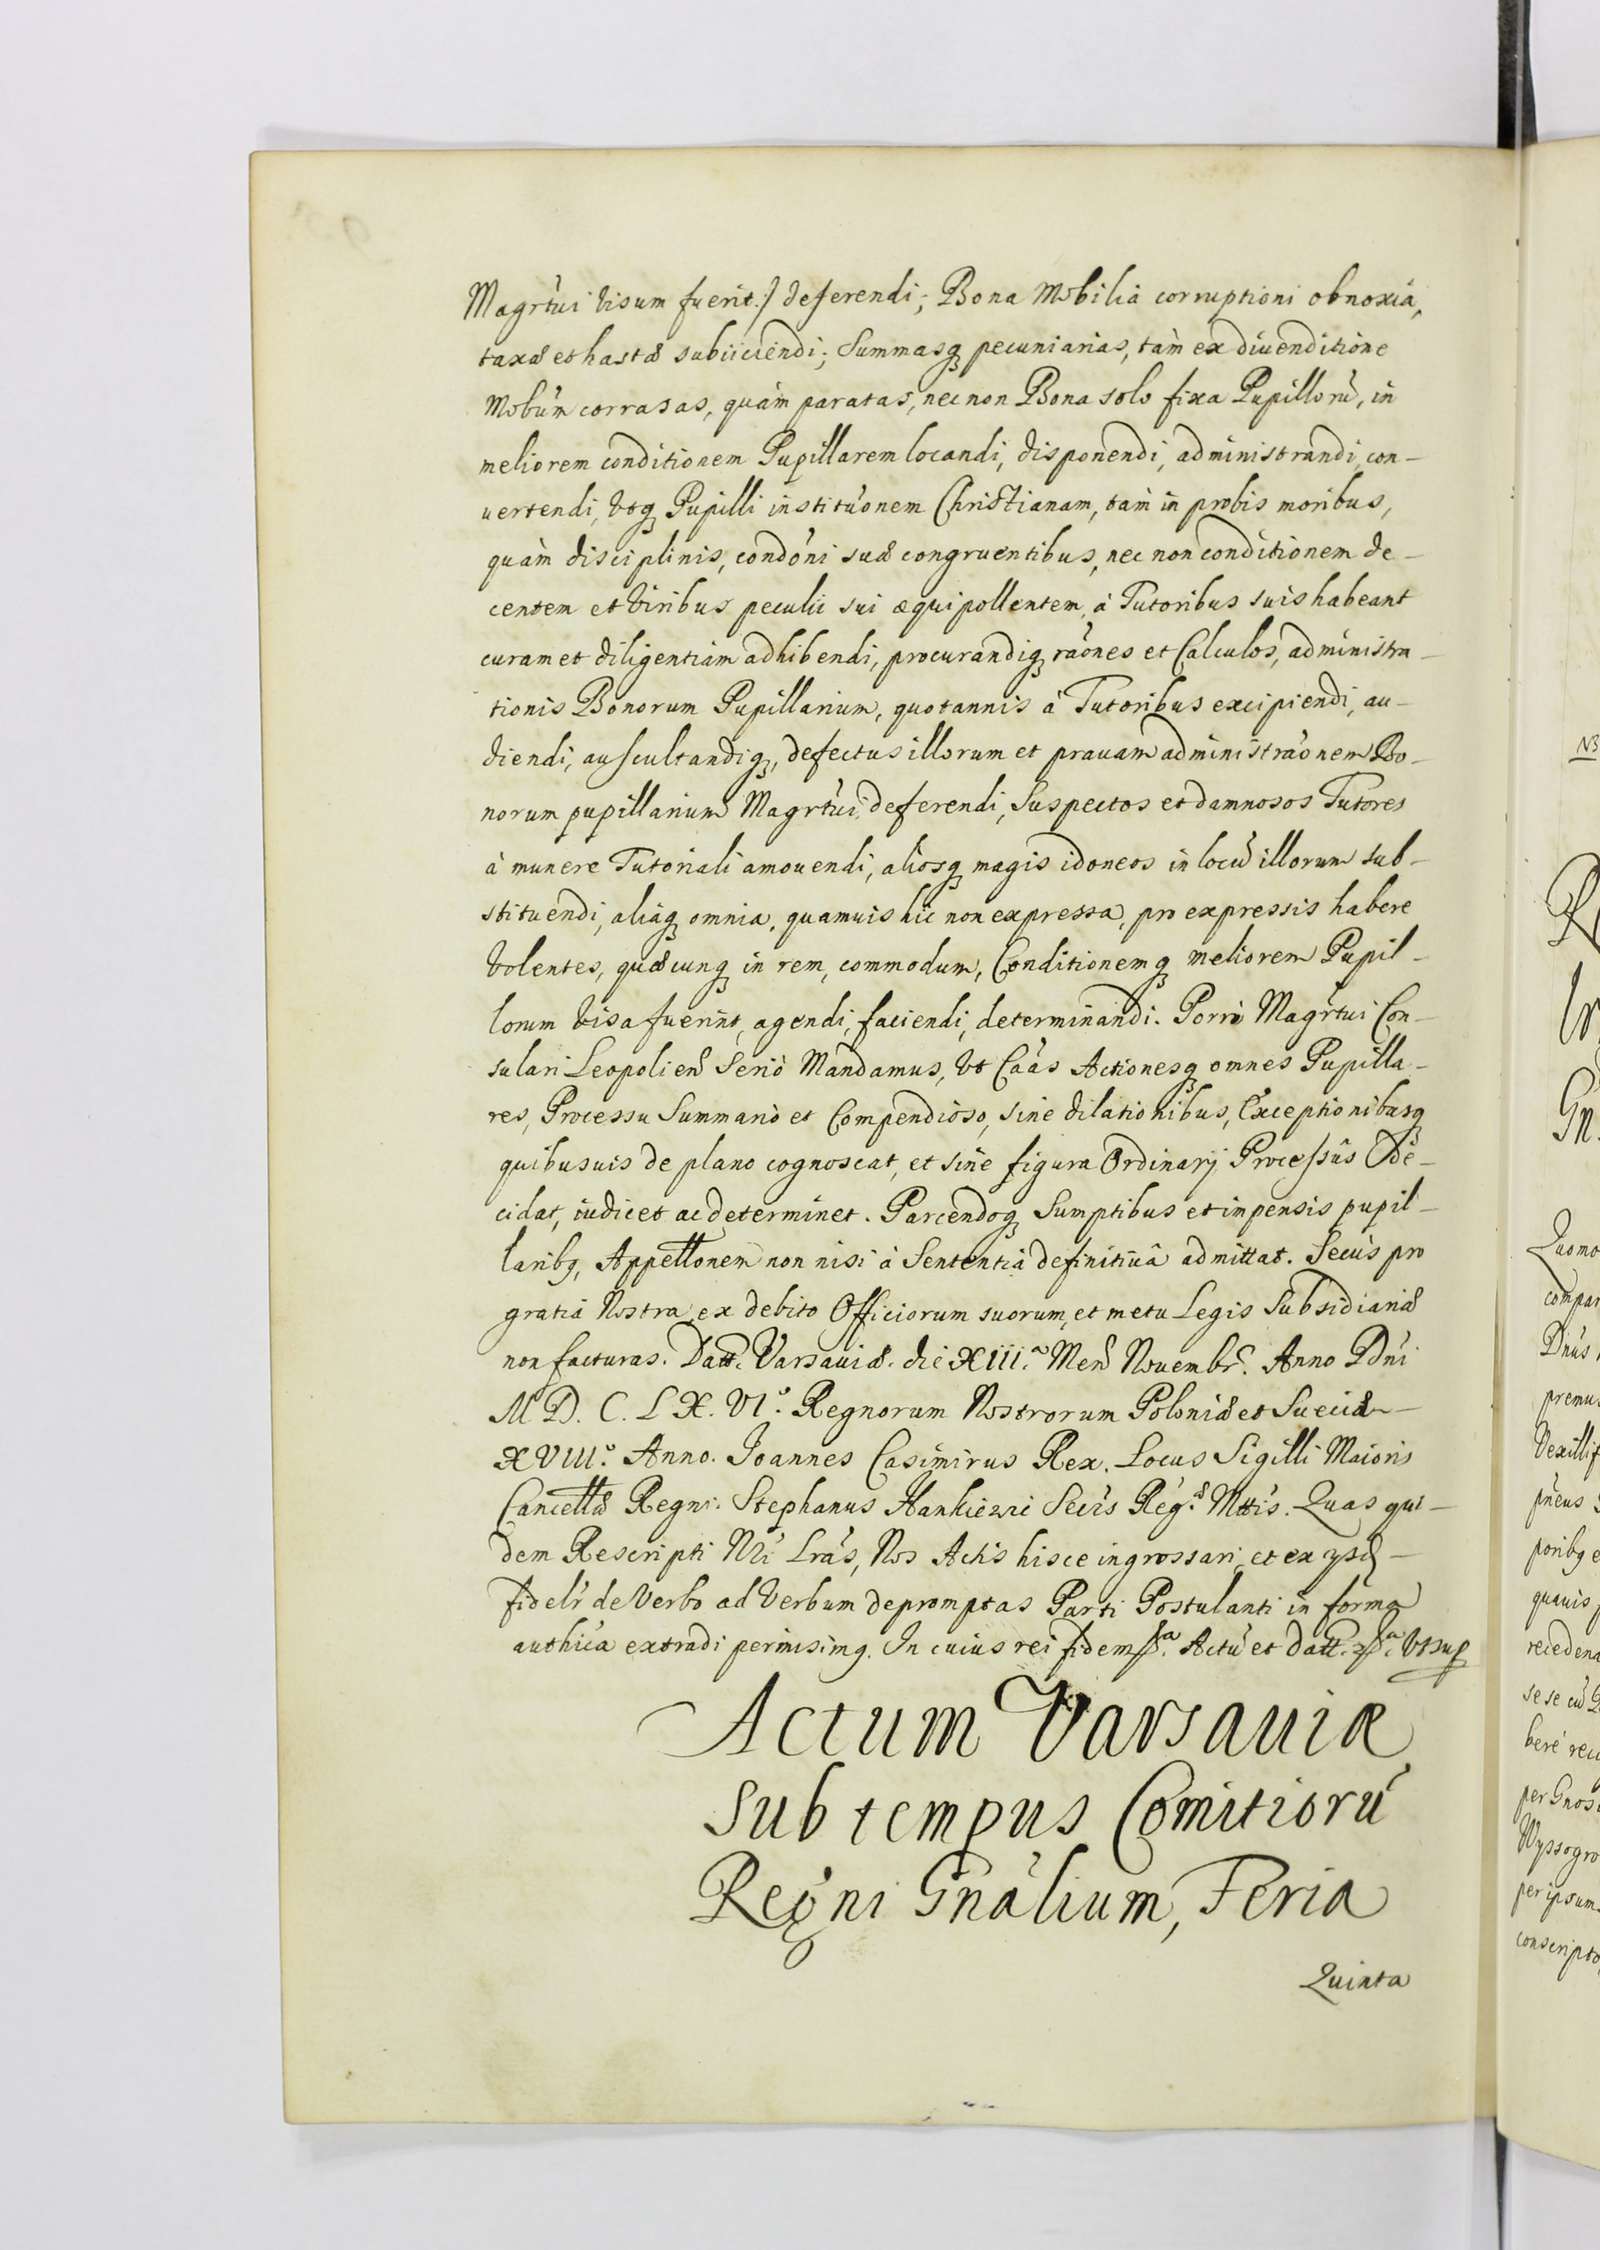 Magr̃tui visum fuerit:/ deferendi; Bona Mobilia corruptioni obnoxia,
taxæ et hastæ subiiciendi; Summasq₃ pecuniarias, tàm ex diuenditione
Mobũm corrasas, quàm paratas, nec non Bona solo fixa Pupillorũ, in
meliorem conditionem Pupillarem locandi, disponendi, administrandi, con-
uertendi, vtq₃ Pupilli institũonem Christianam, tàm in probis moribus,
quàm disciplinis, condõni suæ congruentibus, nec non conditionem de-
centem et viribus peculii sui æquipollentem, à Tutoribus suis habeant
curam et diligentiam adhibendi, procurandiq₃ rãones et Calculos, administra-
tionis Bonorum Pupillarium, quotannis à Tutoribus excipiendi, au-
diendi, auscultandiq₃, defectus illorum et prauam administrãonem Bo-
norum pupillarium Magr̃tui deferendi, Suspectos et damnosos Tutores
à munere Tutoriali amouendi, aliosq₃ magis idoneos in locũ illorum sub-
stituendi, aliaq₃ omnia, quamuis hic non expressa, pro expressis habere
volentes, quæcunq₃ in rem, commodum, Conditionemq₃ meliorem Pupil-
lorum visa fuerint, agendi, faciendi, determinandi. Porrò Magr̃tui Con-
sulari Leopolien̄ Seriò Mandamus, vt Cãas Actionesq₃ omnes Pupilla-
res, Processu Summario et Compendioso, sine dilationibus, Exceptionibusq₃
quibusuis de plano cognoscat, et sine figura Ordinarij Processûs De-
cidat, iudicet ac determinet. Parcendoq₃ Sumptibus et impensis pupil-
laribq₃, Appellõnem non nisi à Sententià definitiuâ admittat. Secùs pro
gratia Nostra, ex debito Officiorum suorum, et metu Legis Subsidiariæ
non facturas. Datt. Varsauiæ. die XIII.ª Men̄ Nouembr̃. Anno Dñi
M D. C. L X. VI.º Regnorum Nostrorum Poloniæ et Sueciæ
XVIII.º Anno. Joannes Casimirus Rex. Locus Sigilli Maioris
Cancellæ Regni. Stephanus Hankiewic Secr̃s Reg.æ Mttis. Quas qui-
dem Rescripti Nr̃i Lr̃as, Nos Actis hisce ingrossari, et ex
fidelr̃ de Verbo ad Verbum depromptas Parti Postulanti in forma
authc̃a extradi permisimq₃. In cuius rei fidem Actũ et Datt. vt sup
Actum Varsauiæ
sub tempus Comitiorũ
Regni Gñalium, Feria
Quinta